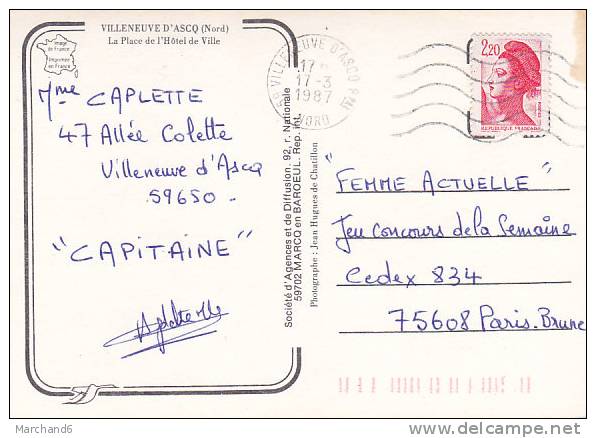 VILLENEUVE D'ASCQ (Nord)
La Place de l'Hôtel de Ville
Image
de France
Imprimée
en France
Mme CAPLETTE
47 Allée Colette
Villeneuve d'Ascq
59650.
"CAPITAINE"
Société d'Agences et de Diffusion, 92, r. Nationale
59702 MARCQ en BARŒUL. Rep. int.
Photographe : Jean Hugues de Chatillon
59 VILLENEUVE D'ASCQ PPAL
17 H
17-3
1987
NORD
2,20
REPUBLIQUE FRANÇAISE
"FEMME ACTUELLE"
Jeu Concours de la Semaine
Cedex 834
75608 Paris.Brune
Marchand6
delcampe.net